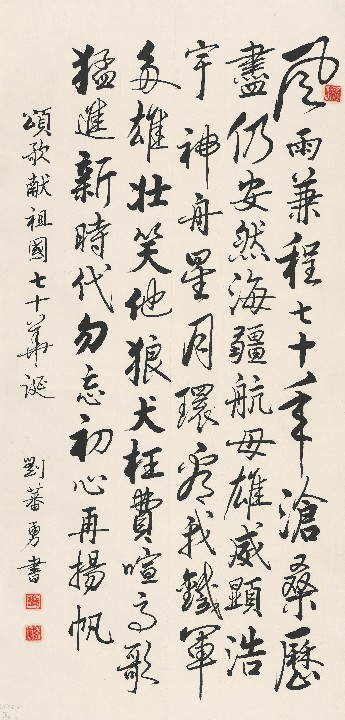 風雨兼程七十年滄桑歷
盡仍安然海疆航母雄威顯浩
宇神舟星月環看我鐵軍
多雄壯笑他狼犬枉費喧高歌
猛進新時代勿忘初心再揚帆
頌歌献祖國七十華誕 劉蕃勇書